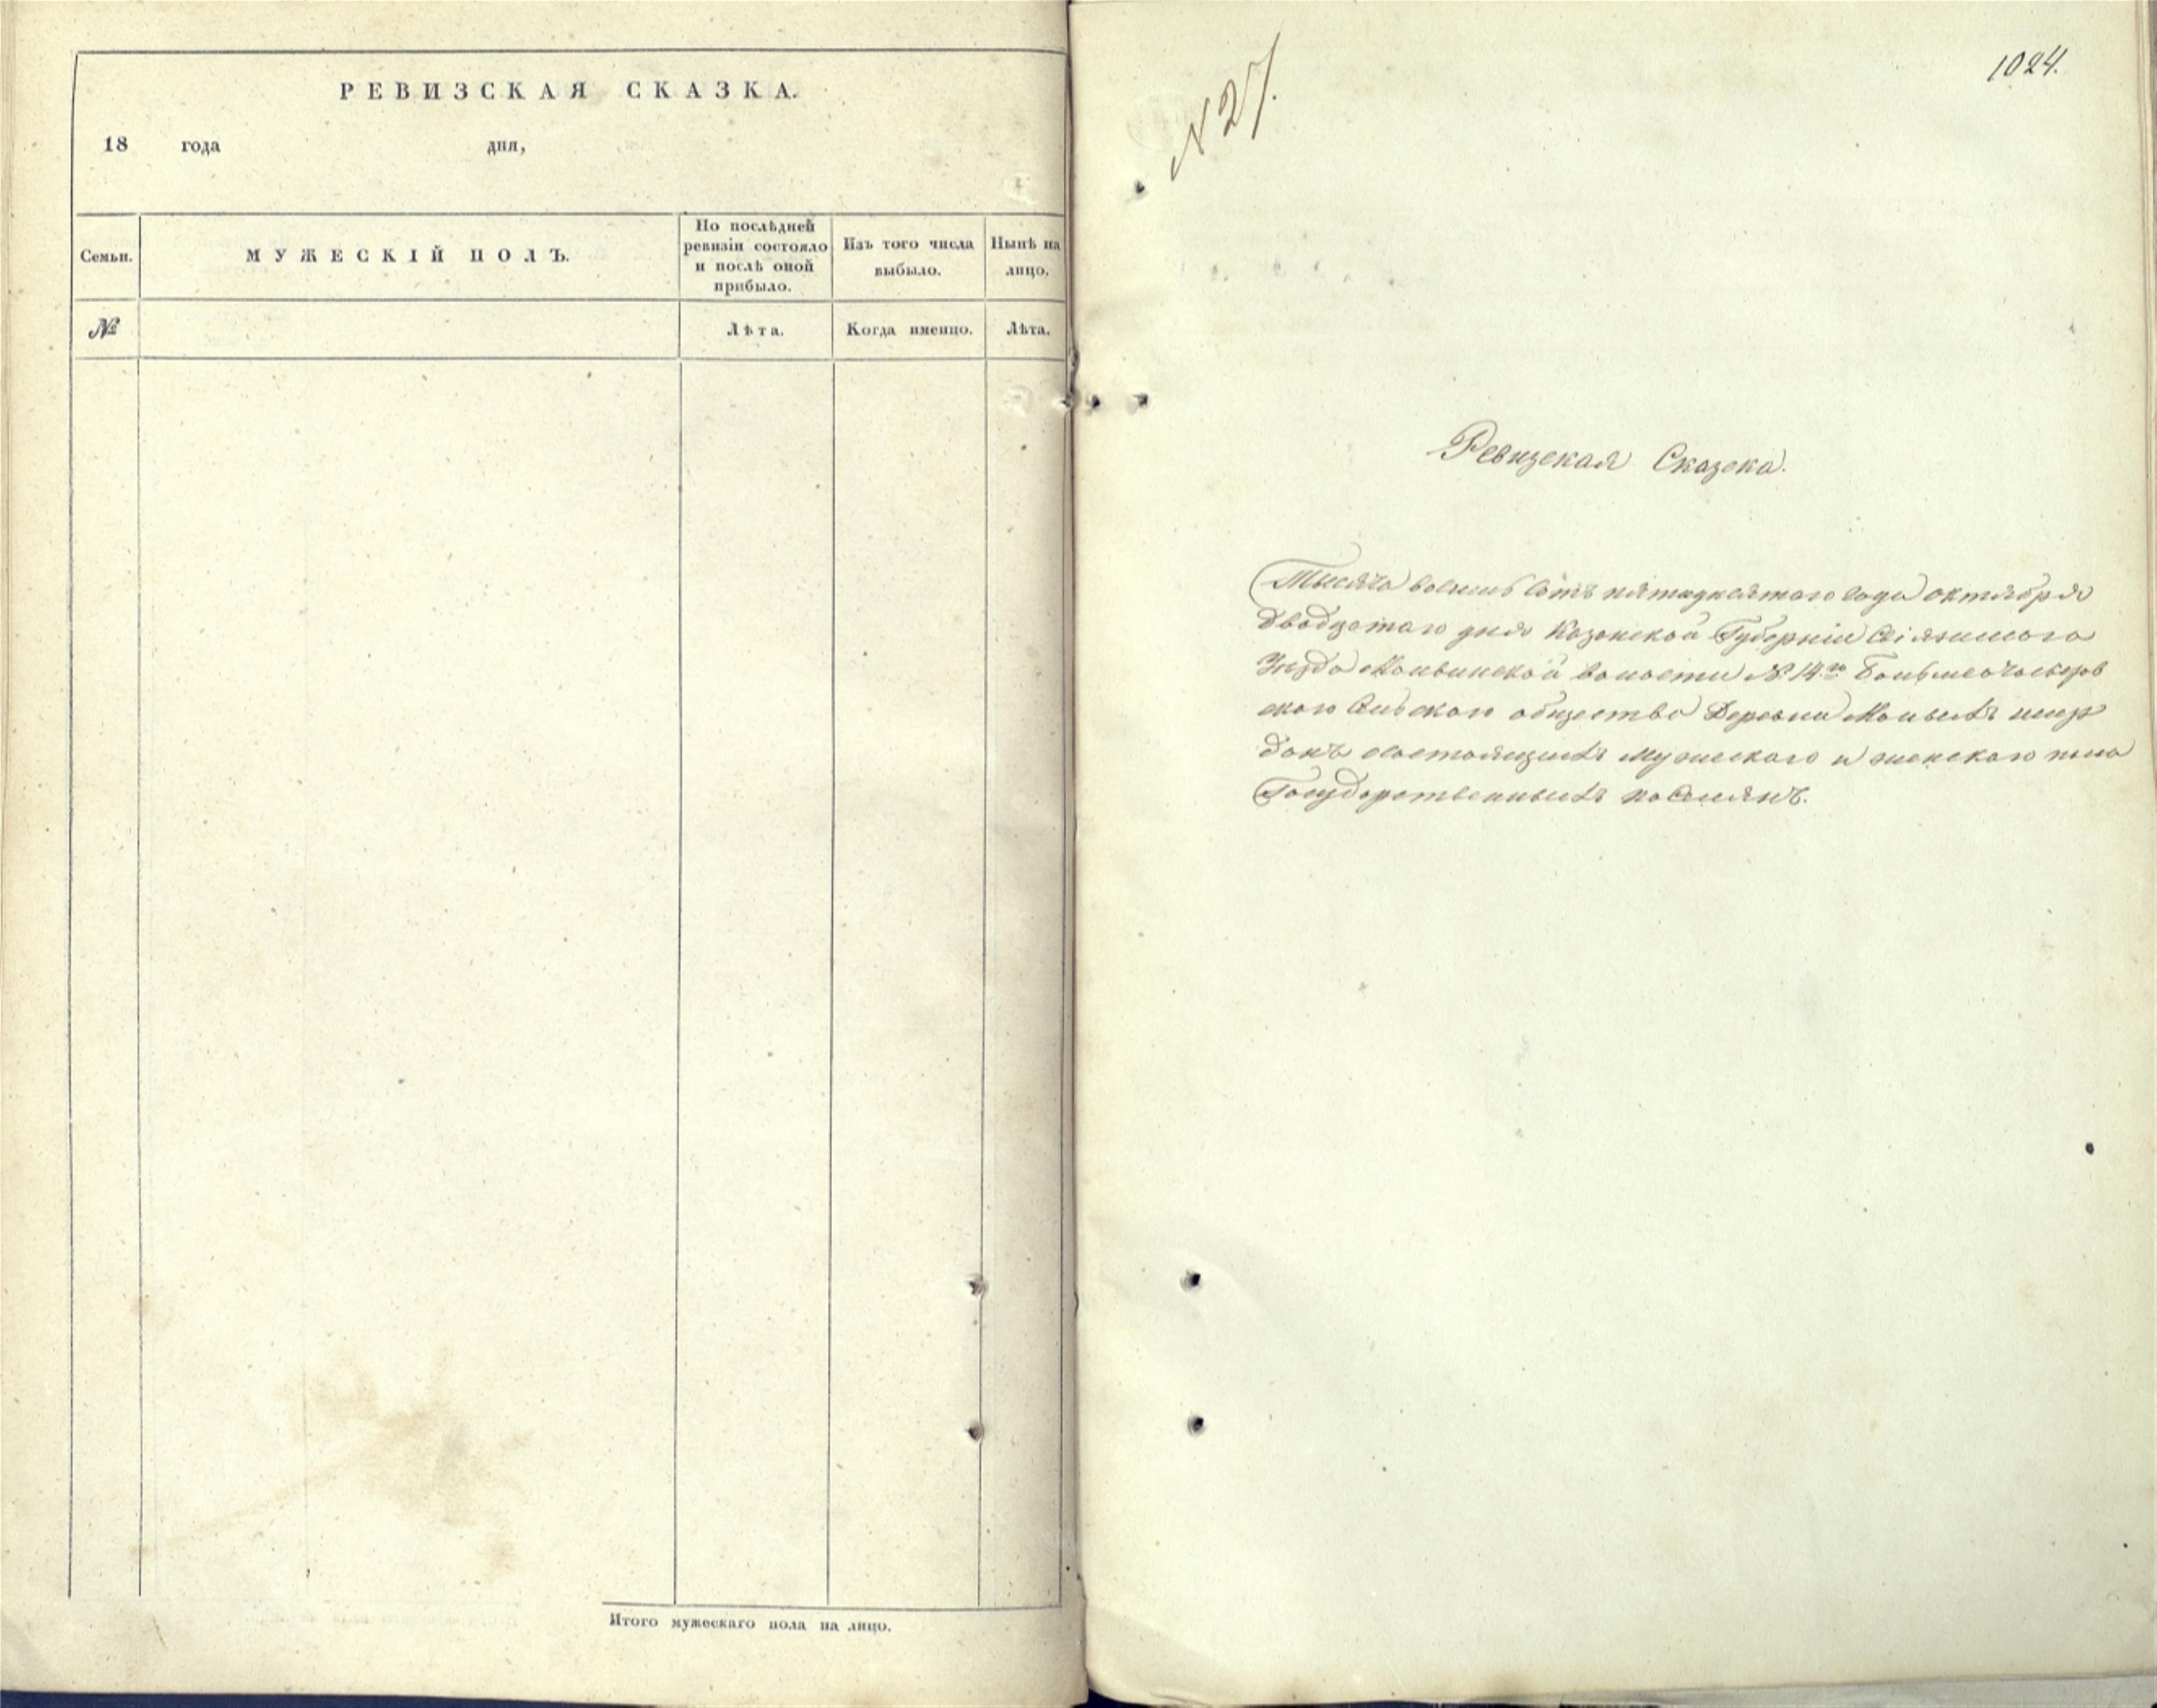 РЕВИЗСКАЯ СКАЗКА.
18 года дня,
Семьи.
МУЖЕСКІЙ ПОЛЪ.
По послѣдней
ревизіи состояло
и послѣ оной
прибыло.
Изъ того числа
выбыло.
Нынѣ на
лицо.
№
Лѣта.
Когда именно.
Лѣта.
Итого мужескаго пола на лицо.
N 27.
1024.
Ревизская Сказска.
Тысяча восемь сотъ пятидесятаго года октября
двадцатаго дня Казанской Губерніи Свіяжскаго
Уѣзда волости № 14го
скаго Сельскаго общества Деревни Малыхъ шир
данъ состоящихъ мужескаго и женскаго пола
Государственныхъ поселянъ.